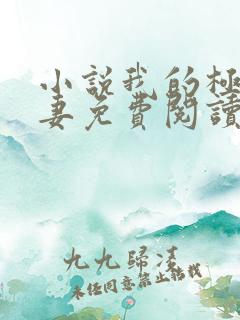 小說我的極
妻免費閱讀
九九歸淩
未經同意禁止轉載